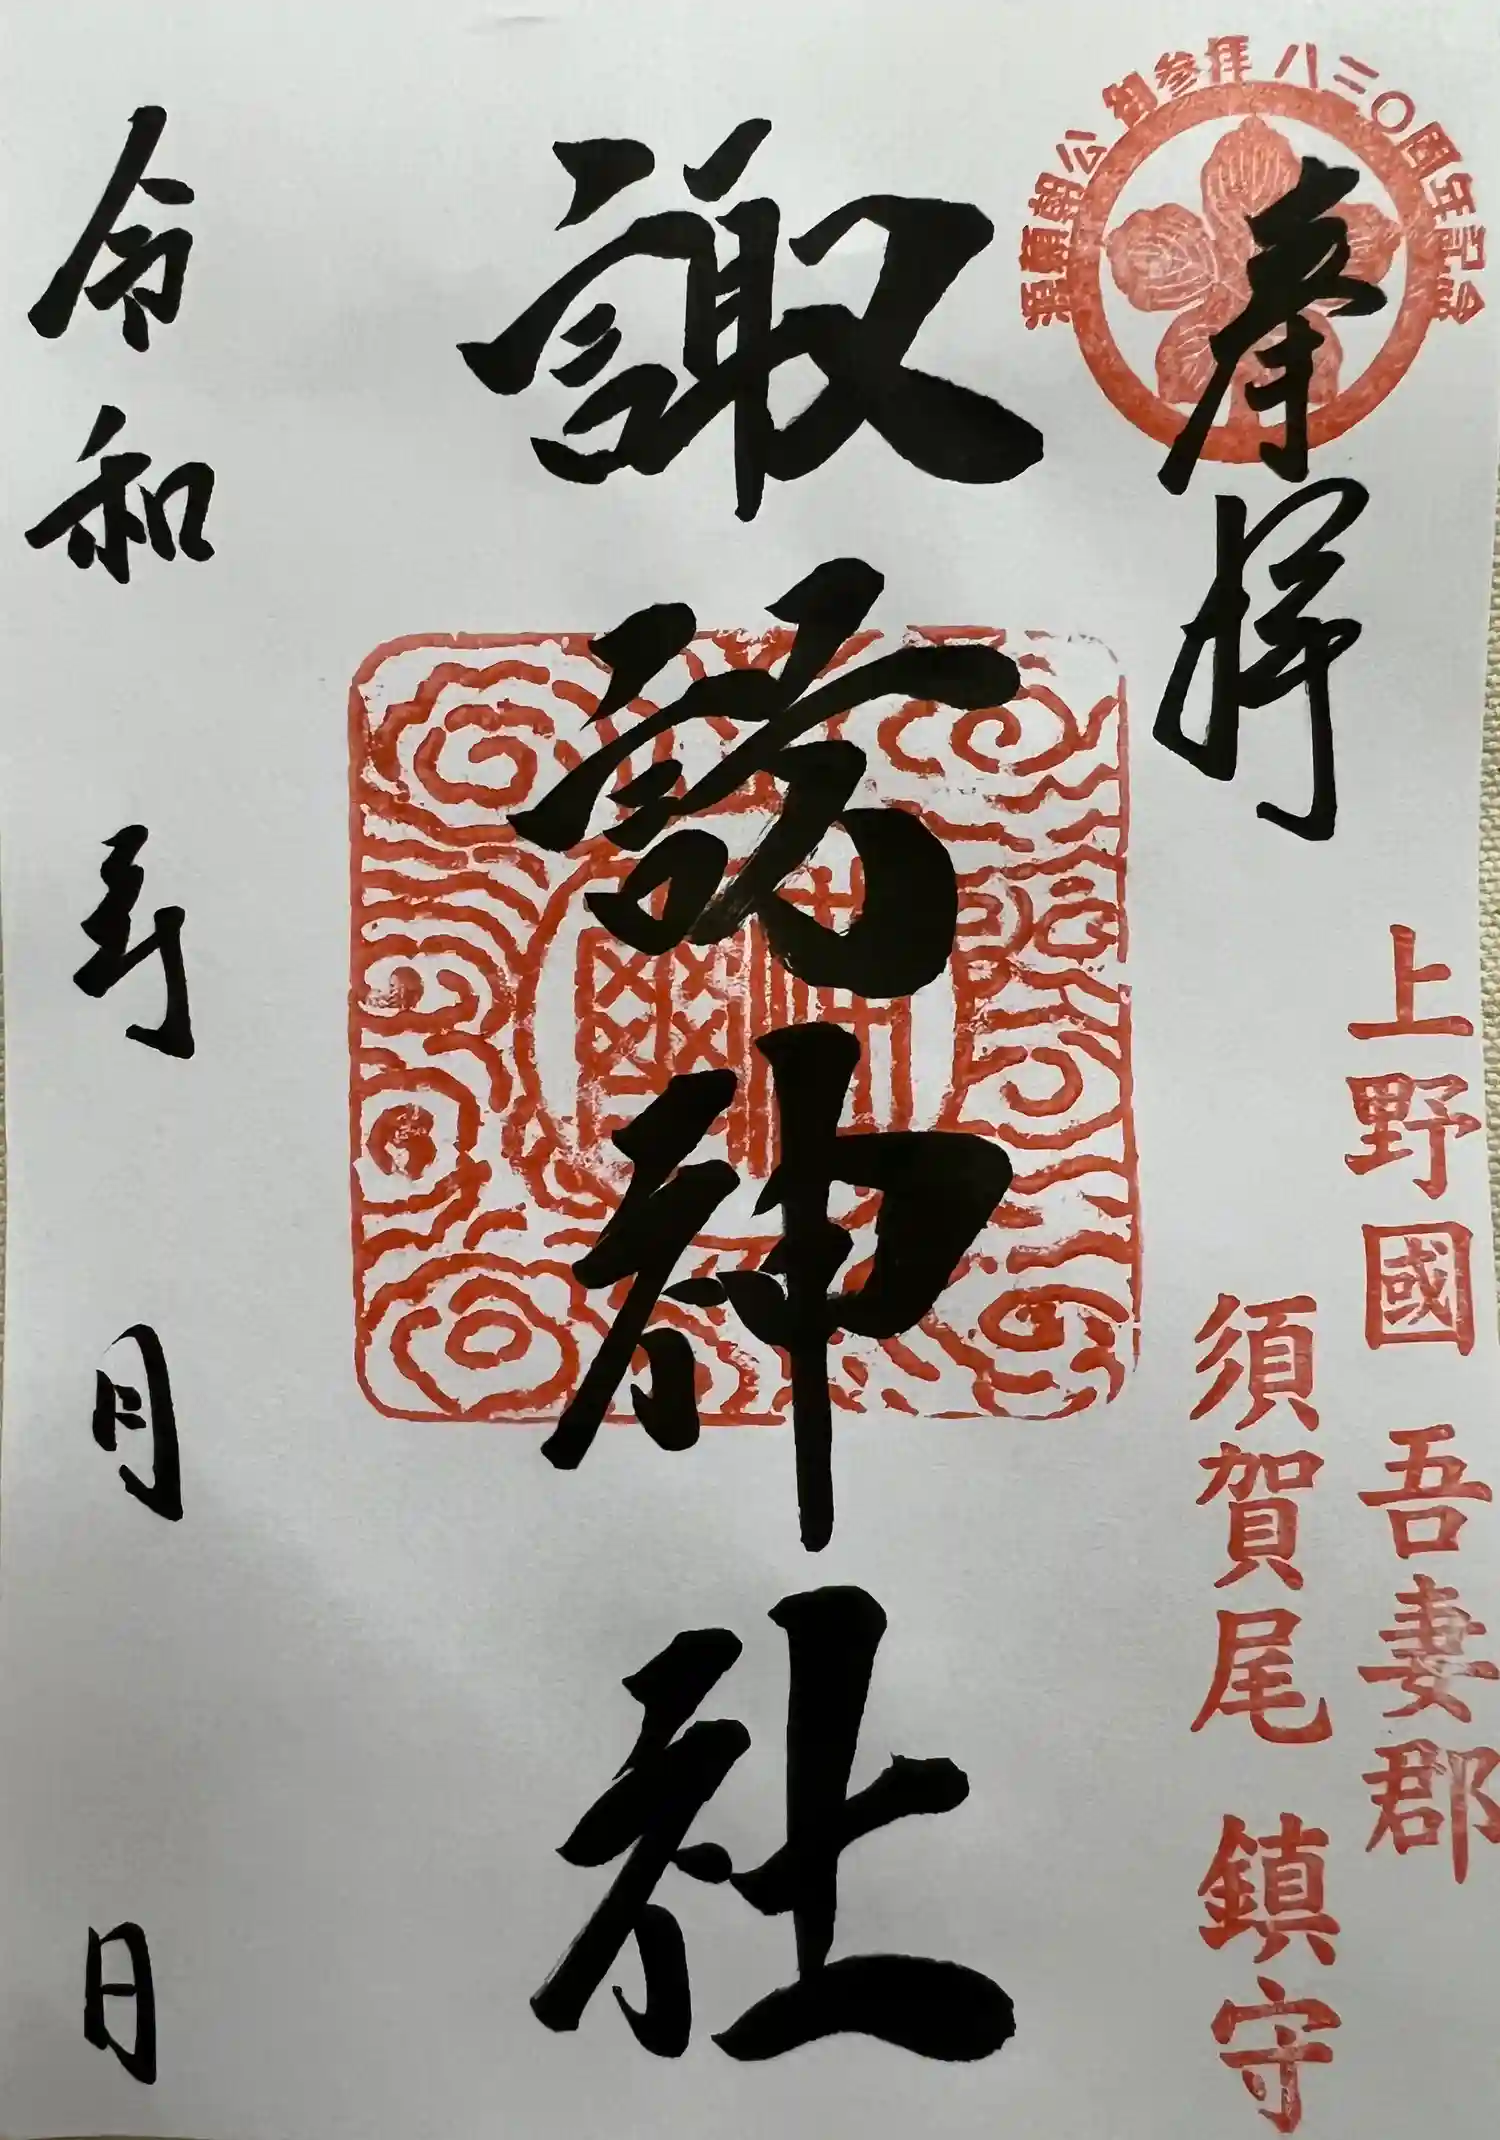 源頼朝公御参拝八三〇周年記念
奉拝
上野國 吾妻郡
須賀尾 鎮守
諏訪神社
令和 年 月 日